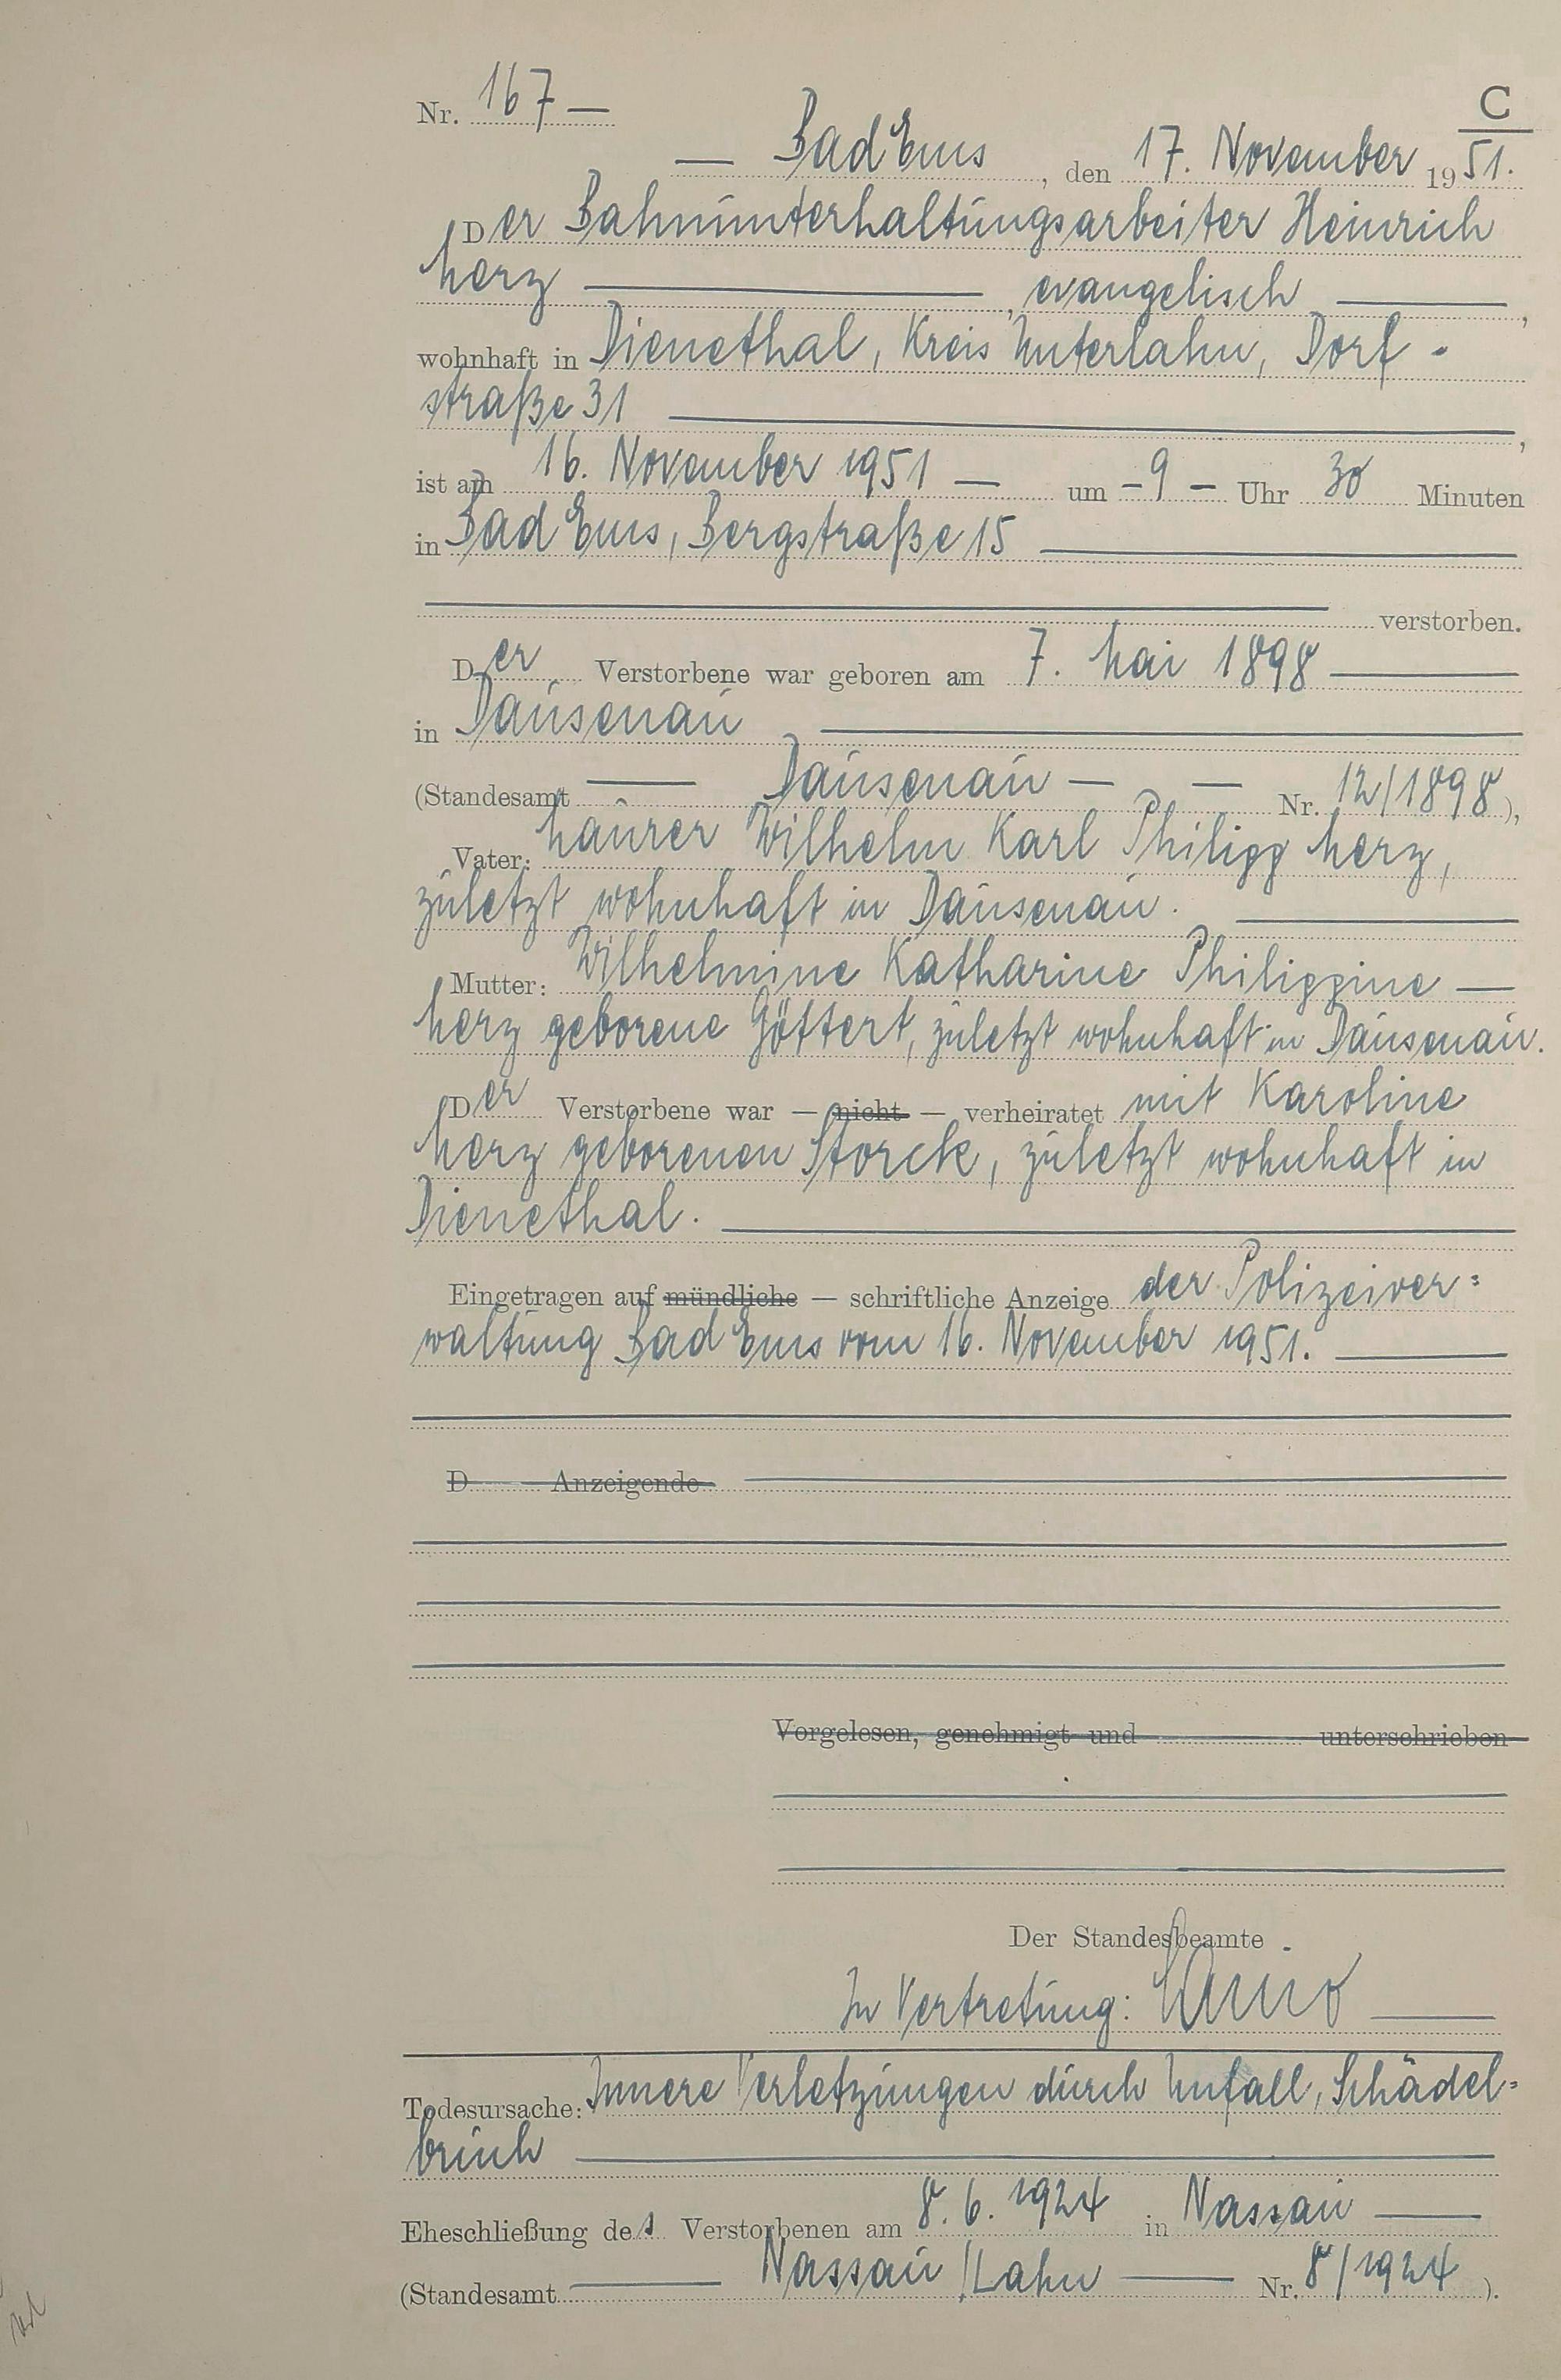 Nr. 167 —
C
— Bad Ems, den 17. November 1951.
Der Bahnunterhaltungsarbeiter Heinrich
Merz —, evangelisch —,
wohnhaft in Dienethal, Kreis Unterlahn, Dorf-
straße 31 —,
ist am 16. November 1951 — um - 9 - Uhr 30 Minuten
in Bad Ems, Bergstraße 15 —
— verstorben.
Der Verstorbene war geboren am 7. Mai 1898 —
in Dausenau —
(Standesamt — Dausenau — — Nr. 12/1898),
Vater: Maurer Wilhelm Karl Philipp Merz,
zuletzt wohnhaft in Dausenau. —
Mutter: Wilhelmine Katharine Philippine —
Merz geborene Göttert, zuletzt wohnhaft in Dausenau.
Der Verstorbene war — nicht — verheiratet mit Karoline
Merz geborenen Storck, zuletzt wohnhaft in
Dienethal. —
Eingetragen auf mündliche — schriftliche Anzeige der Polizeiver=
waltung Bad Ems vom 16. November 1951. —
D Anzeigende
Vorgelesen, genehmigt und unterschrieben
Der Standesbeamte
In Vertretung:
Todesursache: Innere Verletzungen durch Unfall, Schädel=
bruch —
Eheschließung des Verstorbenen am 8. 6. 1924 in Nassau —
(Standesamt — Nassau/Lahn — Nr. 8/1924).